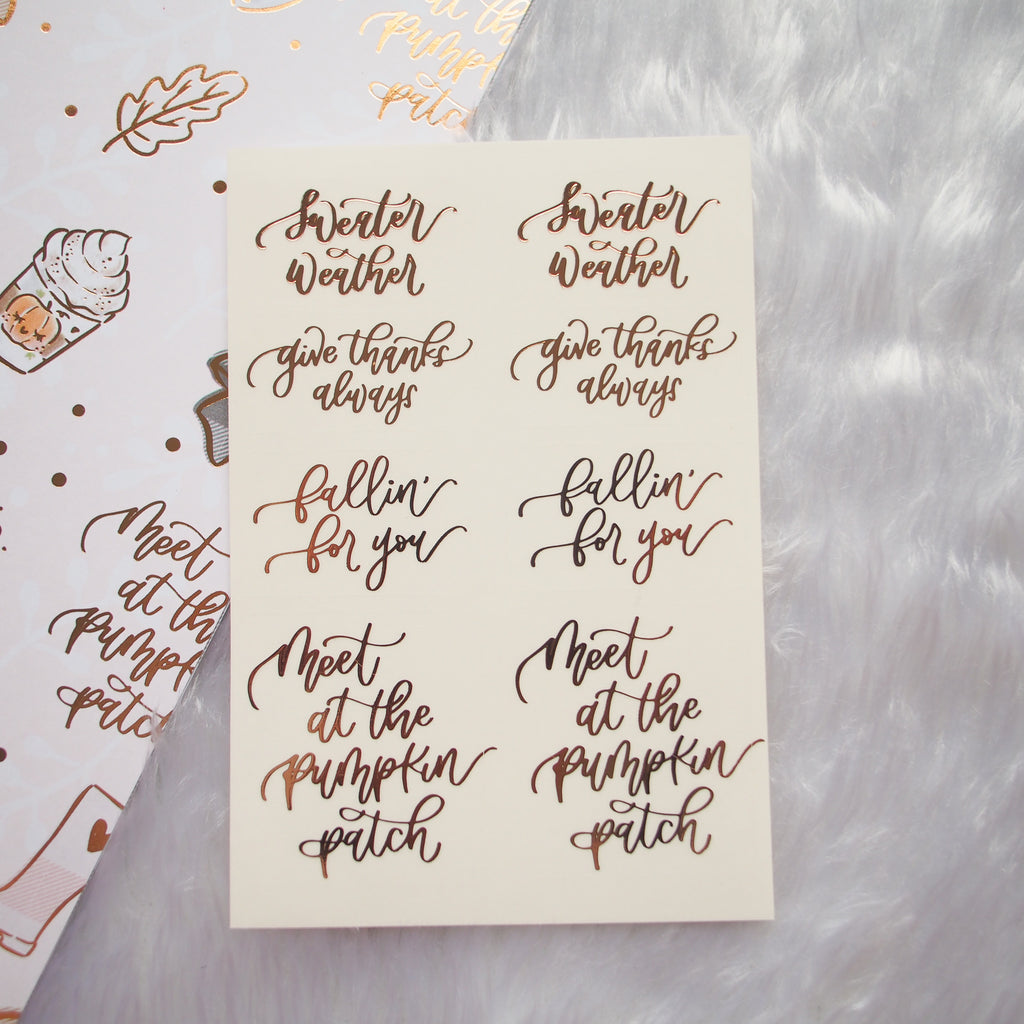 at th
pumpk
patc
Sweater
weather
Sweater
weather
give thanks
always
give thanks
always
fallin'
for you
fallin'
for you
Meet
at the
pumpkin
patch
Meet
at the
pumpkin
patch
Meet
at th
pumpk
patc